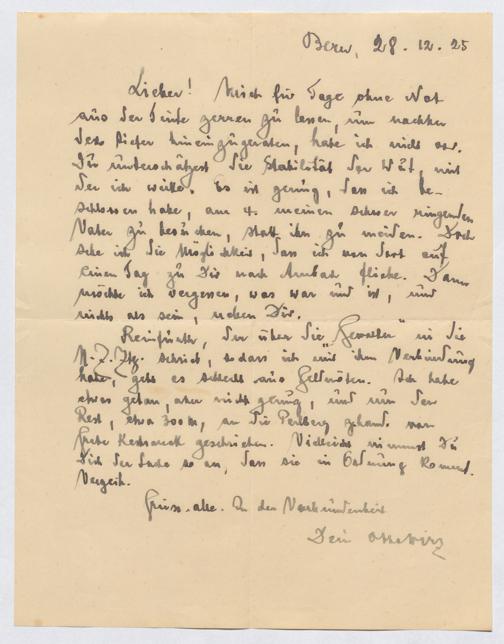 Bern, 28. 12. 25
Lieber! Mich für Tage ohne Not
aus der Tinte zerren zu lassen, um nachher
desto tiefer hineinzugeraten, habe ich nicht vor.
Du unterschätzest die Stabilität der Wut, mit
der ich wirke. Es ist genug, dass ich be-
schlossen habe, am 4. meinen schwer ringenden
Vater zu besuchen, statt ihn zu meiden. Doch
sehe ich die Möglichkeit, dass ich von dort auf
einen Tag zu Dir nach Ambach fliehe. Dann
möchte ich vergessen, was war und ist, und
nichts als sein, neben Dir.
Reinfurth, der über die "Gewalten" in die
N. Z. Ztg. schrieb, sodass ich mit ihm Verbindung
habe, geht es schlecht aus Geldnöten. Ich habe
etwas getan, aber nicht genug, und um den
Rest, etwa 300 M, an die Perlberg
Grete geschrieben. Vielleicht nimmst Du
Dich der Sache so an, dass sie in Ordnung kommt.
Verzeih.
Grüss. alle. In der Verbundenheit
Dein